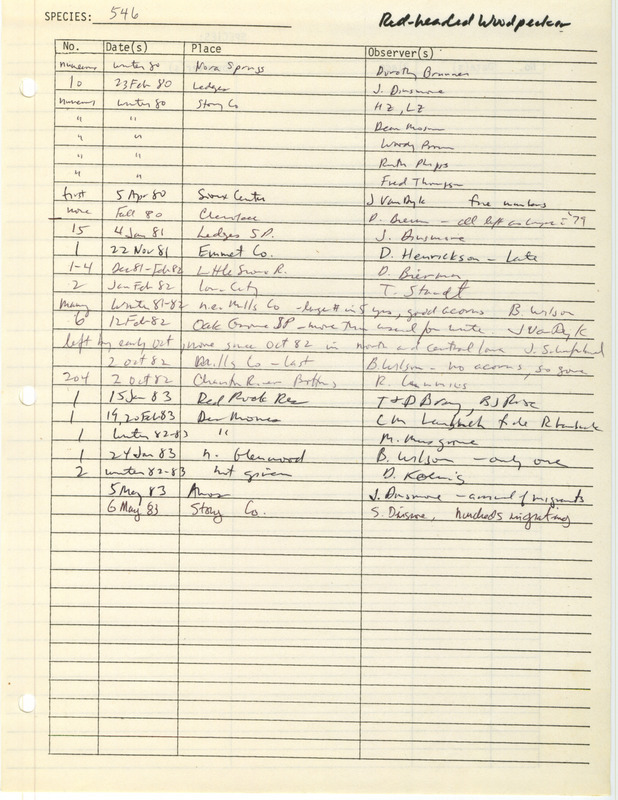 SPECIES: 546 Red-headed Woodpecker
No. Date(s) Place Observer(s)
numerous winter 80 Nora Springs Dorothy Brunner
10 23 Feb 80 Ledges J. Dinsmore
numerous winter 80 Story Co HZ, LZ
" " Dean Mosman
" " Woody
" " Ruth Phipps
" " Fred Thompson
first 5 Apr 80 Sioux Center J Van Dyk fine numbers
none Fall 80 Cherokee D. Bierman - all left as larger i '79
15 4 Jan 81 Ledges S.P. J. Dinsmore
1 22 Nov 81 Emmet Co. D. Henrickson - Late
1-4 Dec 81-Feb 82 Little Sioux R. D. Bierman
2 Jan Feb 82 Low City T. Staudt
many Winter 81-82 n.e. Mills Co - large # in 5 yrs, good acorns B. Wilson
6 12 Feb 82 Oak Grove SP - more than usual for winter J Van Dyk
left by early Oct, none since Oct 82 in north and central Iowa J. Schaufenbuel
2 Oct 82 Mills Co - last B. Wilson - no acorns, so gone
204 2 Oct 82 Chariton River Bottoms R. Cummins
1 15 Jan 83 Red Rock Res T & D Bray, BJ Rose
1 19, 20 Feb 83 Des Moines C M fide R
1 winter 82-83 " M. Musgrove
1 24 Jan 83 n. Glenwood B. Wilson - only one
2 winter 82-83 not given D. Koenig
5 May 83 Ames J. Dinsmore - arrival of migrants
6 May 83 Story Co. S. Dinsmore, hundreds migrating